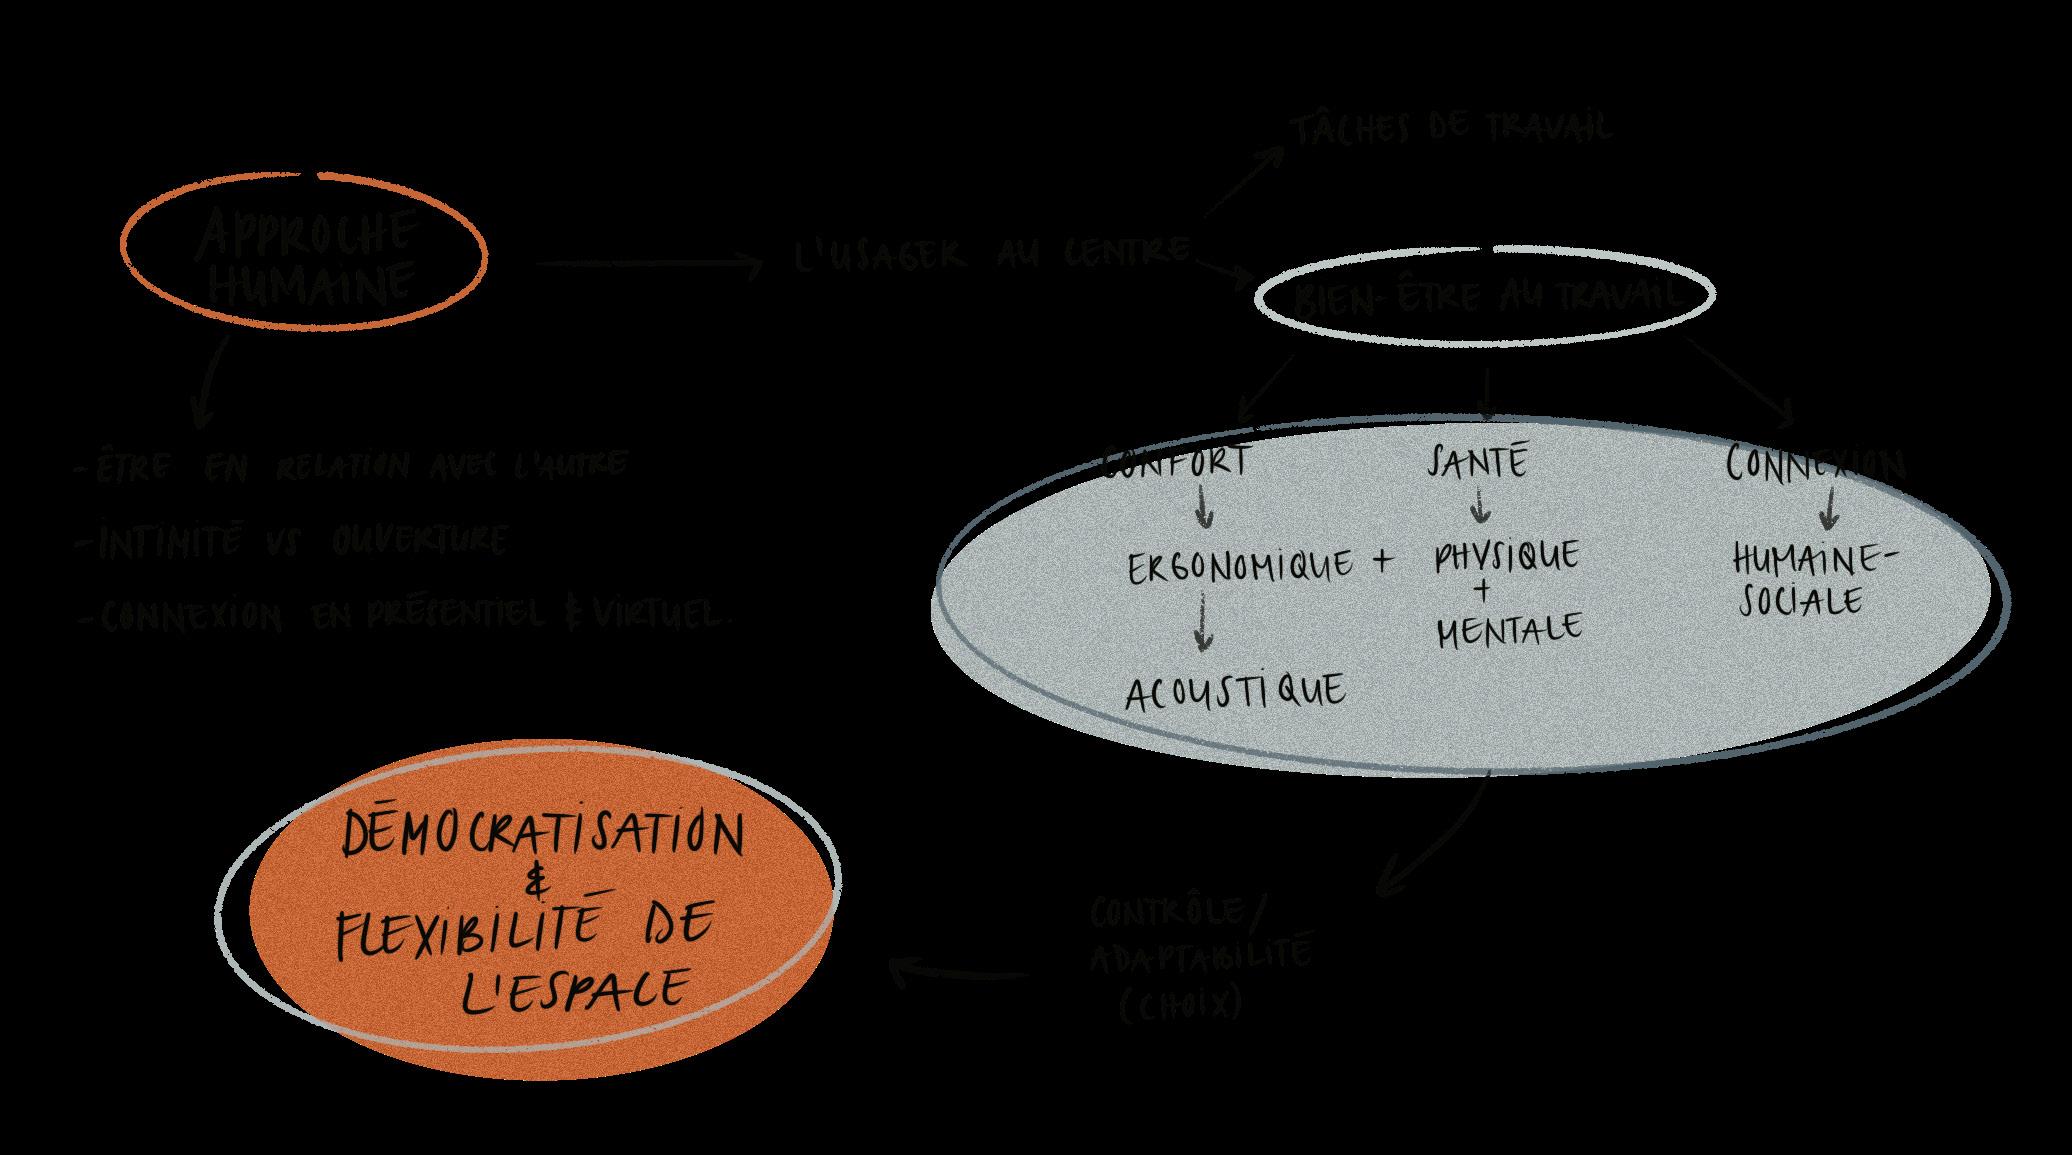 TÂCHES DE TRAVAIL
APPROCHE
HUMAINE
L'USAGER AU CENTRE
BIEN-ÊTRE AU TRAVAIL
-ÊTRE EN RELATION AVEC L'AUTRE
-INTIMITÉ VS OUVERTURE
-CONNEXION EN PRÉSENTIEL & VIRTUEL.
CONFORT
SANTÉ
CONNEXION
ERGONOMIQUE +
PHYSIQUE
+
MENTALE
HUMAINE-
SOCIALE
ACOUSTIQUE
CONTRÔLE/
ADAPTABILITÉ
(CHOIX)
DÉMOCRATISATION
&
FLEXIBILITÉ DE
L'ESPACE